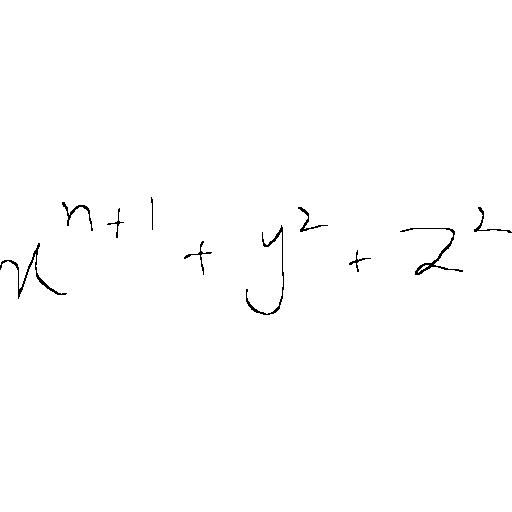 x^{n+1} + y^2 + z^2